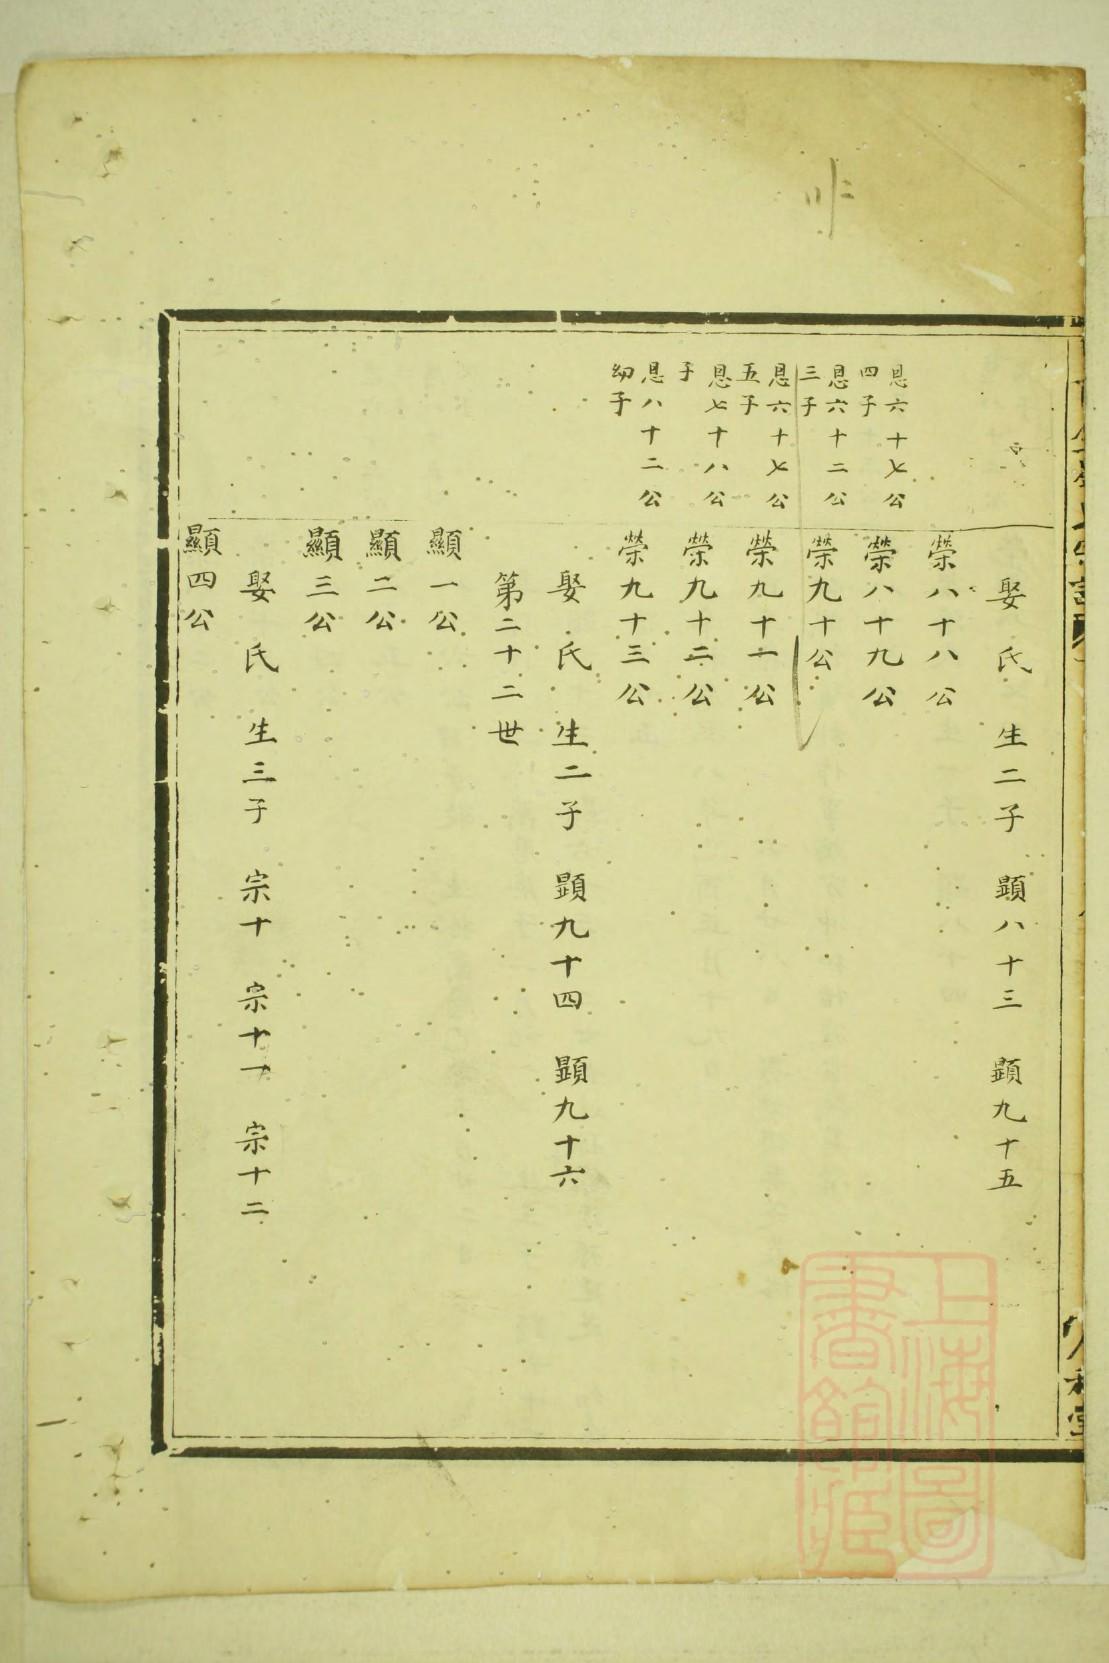 娶 氏 生二子 顕八十三 顕九十五
榮八十八公
恩六十七公
四子
榮八十九公
恩六十二公
三子
榮九十公
恩六十七公
五子
榮九十一公
恩七十八公
子
榮九十二公
恩八十二公
幼子
榮九十三公
娶 氏 生二子 顕九十四 顕九十六
第二十二世
顯一公
顯二公
顯三公
娶 氏 生三子 宗十 宗十一 宗十二
顯四公
上海圖
書館藏